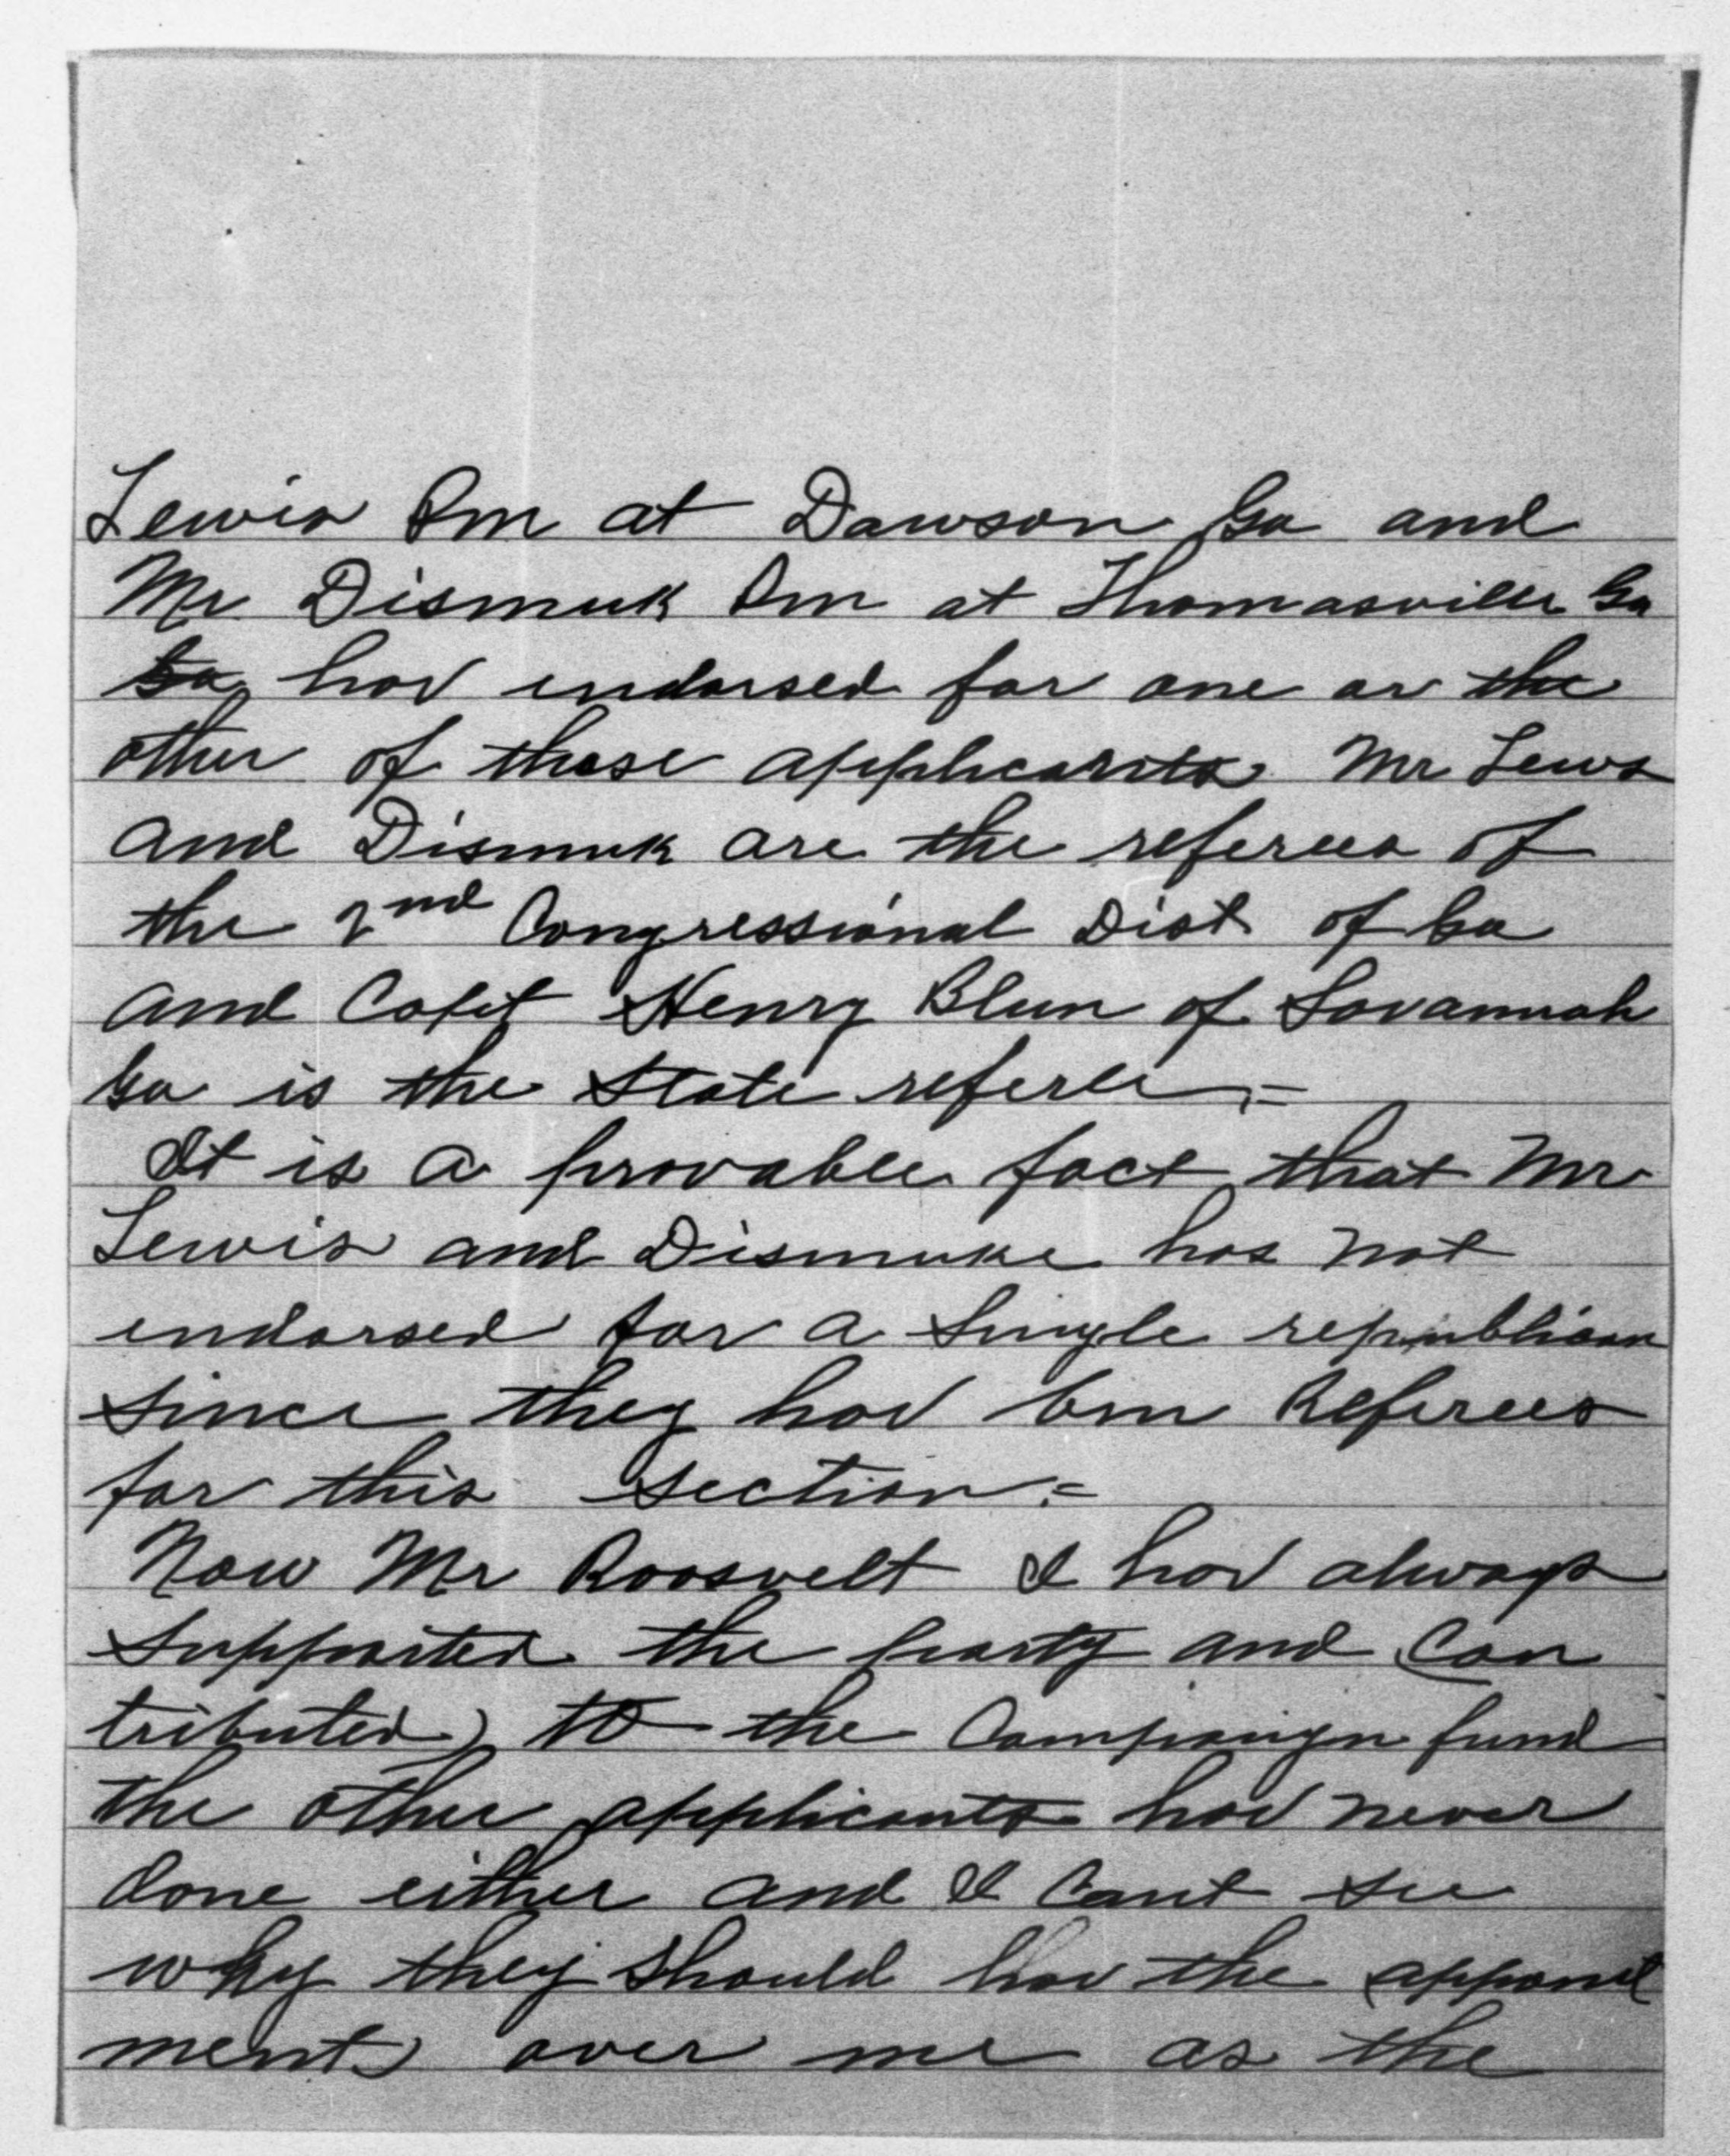 Lewis Pm at Dawson Ga and
Mr Dismuk Pm at Thomasville Ga
Ga hav endorsed for one or the
other of these applicants Mr Lews
and Dismuk are the referees of
the 2nd Congressional Dist of Ga
and Capt Henry Blun of Savannah
Ga is the State referee,=
It is a provable fact that Mr
Lewis and Dismuke has not
endorsed for a single republican
since they hav ben Referees
for this section:=
Now Mr Roosvelt I hav always
supported the party and (con
tributed) to the Campaign fund
the other applicants hav never
done either and I cant see
why they should hav the (appont
ment) over me as the